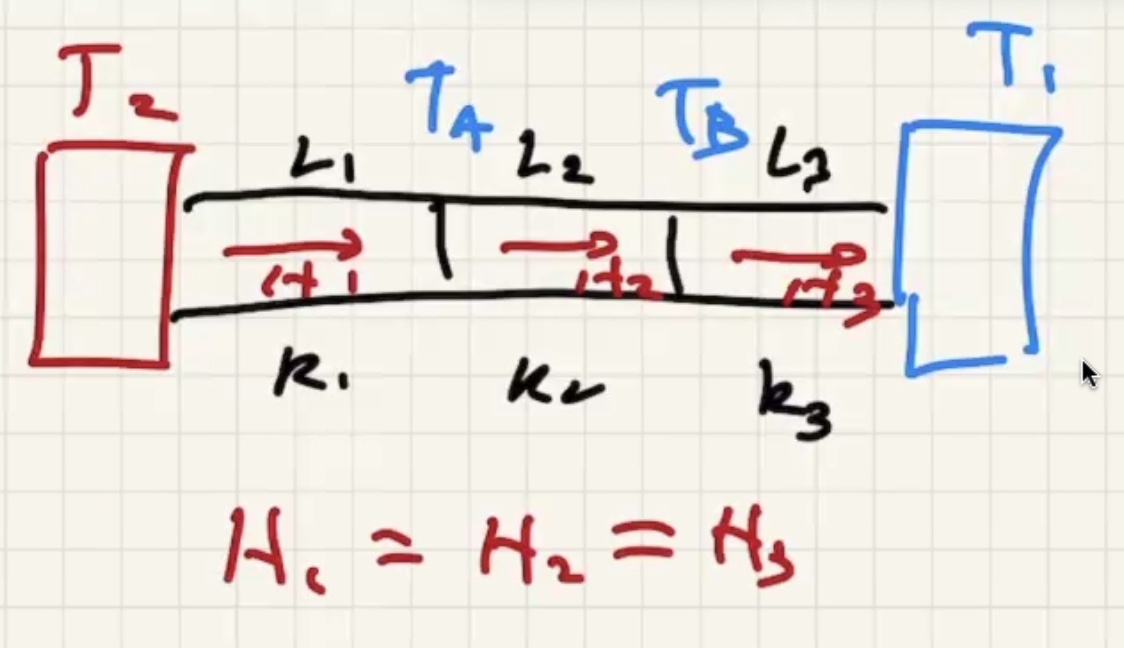 T₂ T_A T_B T₁
L₁ L₂ L₃
H₁ H₂ H₃
K₁ K₂ k₃
H₁ = H₂ = H₃